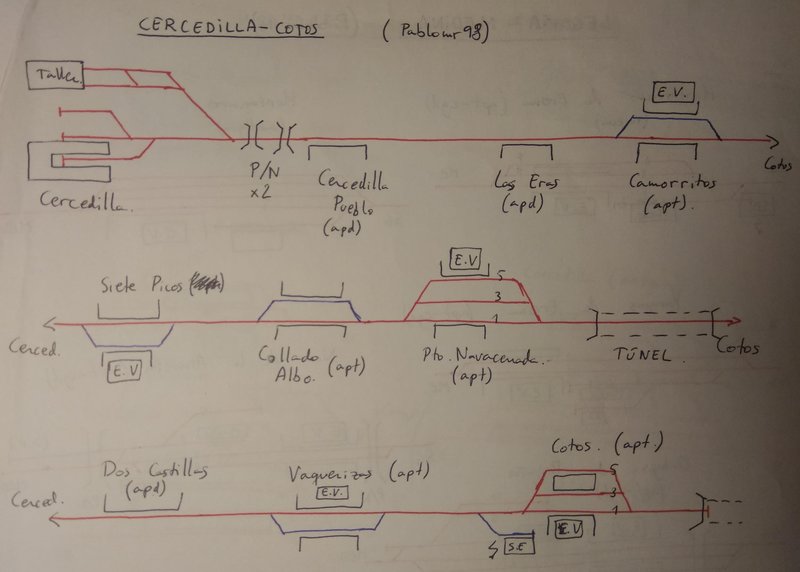 CERCEDILLA-COTOS (Pablomr98)
Taller.
E.V.
Cotos
P/N
x2
Cercedilla
Pueblo
(apd)
Las Eras
(apd)
Camorritos
(apt).
Cercedilla.
Siete Picos
E.V
5
3
1
Cerced.
E.V
Collado
Albo. (apt)
Pto. Navacerrada.
(apt)
TÚNEL.
Cotos
Cotos. (apt.)
Dos Castillas
(apd)
Vaquerizas (apt)
E.V.
5
3
1
Cerced.
S.E
E.V